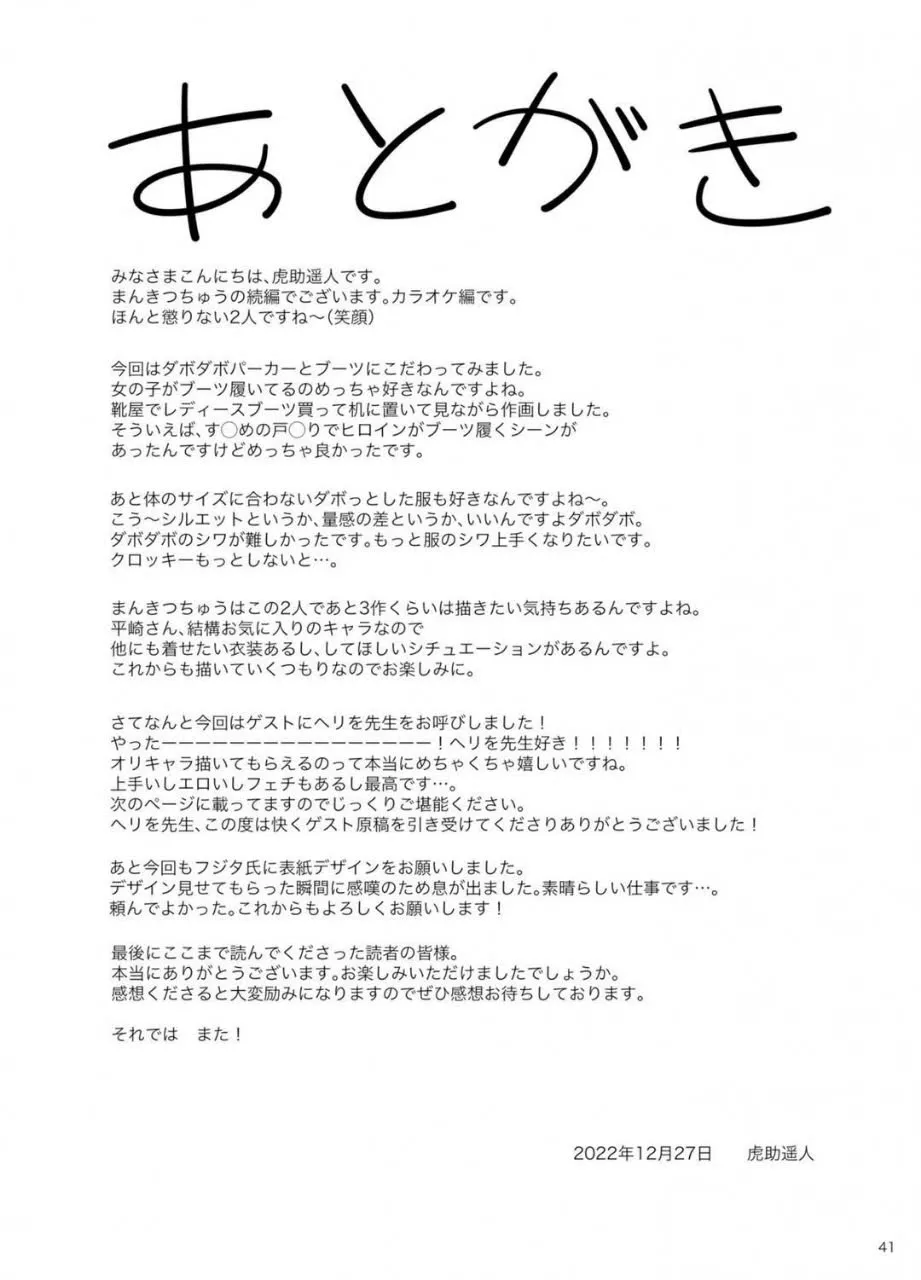 あとがき
みなさまこんにちは、虎助遥人です。
まんきつちゅうの続編でございます。カラオケ編です。
ほんと懲りない2人ですね〜（笑顔）
今回はダボダボパーカーとブーツにこだわってみました。
女の子がブーツ履いてるのめっちゃ好きなんですよね。
靴屋でレディースブーツ買って机に置いて見ながら作画しました。
そういえば、す◯めの戸◯りでヒロインがブーツ履くシーンが
あったんですけどめっちゃ良かったです。
あと体のサイズに合わないダボっとした服も好きなんですよね〜。
こう〜シルエットというか、量感の差というか、いいんですよダボダボ。
ダボダボのシワが難しかったです。もっと服のシワ上手くなりたいです。
クロッキーもっとしないと…。
まんきつちゅうはこの2人であと3作くらいは描きたい気持ちあるんですよね。
平崎さん、結構お気に入りのキャラなので
他にも着せたい衣装あるし、してほしいシチュエーションがあるんですよ。
これからも描いていくつもりなのでお楽しみに。
さてなんと今回はゲストにヘリを先生をお呼びしました！
やったーーーーーーーーーーーーーーーー！ヘリを先生好き！！！！！！！
オリキャラ描いてもらえるのって本当にめちゃくちゃ嬉しいですね。
上手いしエロいしフェチもあるし最高です…。
次のページに載ってますのでじっくりご堪能ください。
ヘリを先生、この度は快くゲスト原稿を引き受けてくださりありがとうございました！
あと今回もフジタ氏に表紙デザインをお願いしました。
デザイン見せてもらった瞬間に感嘆のため息が出ました。素晴らしい仕事です…。
頼んでよかった。これからもよろしくお願いします！
最後にここまで読んでくださった読者の皆様。
本当にありがとうございます。お楽しみいただけましたでしょうか。
感想くださると大変励みになりますのでぜひ感想お待ちしております。
それでは　また！
2022年12月27日　　虎助遥人
41